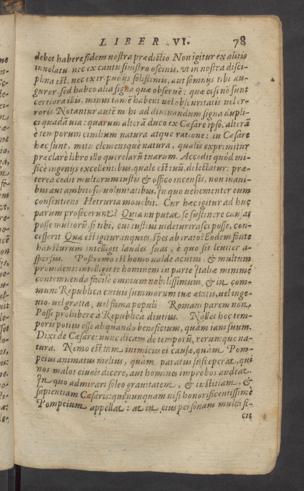 LIBER VI. 78
debet habere fidem nostra prædictio Non igitur ex alitis
inuolatu nec ex cantu sinistro oscinis, vt in nostra disci-
plina est, nec ex tripudiis solistimis, aut somniis tibi au-
guror sed habeo alia signa quæ obseruē: quæ etsi nō sunt
certiora illis, minus tamē habent vel obscuritatis vel er-
roris Notantur autē mihi ad diuinandum signa dupli-
ci quadā via: quarum alterā duco ex Cæsare ipso, alterā
è temporum ciuilium natura atque ratione: in Cæsare
hæc sunt, mitis clemensque natura, qualis exprimitur
præclaro libro illo querelarū tuarum. Accedit quòd mi-
rificè ingeniis excellentibus, quale est tuū, delectatur: præ-
terea cedit multorum iustis & officio incensis, non inani-
bus aut ambitiosis voluntatibus, in quo vehementer eum
consentiens Hetruria mouebit. Cur hæc igitur ad huc
parum profecerunt? Quia nō putat se sustinere causas
posse multorū si tibi, cui iustius videtur irasci posse, con-
cesserit Quæ est igitur inquies, spes ab irato? Eodem fonte
se hausturum intelligit laudes suas, è quo sit leuiter a-
spersus. Postremo est homo valde acutus & multum
prouidens: intelligit te hominem in parte Italiæ minimè
contemnenda facilè omnium nobilissimum, & in com-
muni Republica cuiuis summorum tuæ ætatis, vel inge-
nio vel gratia, vel fama populi Romani parem non
Posse prohibere à Republica diutius. Nolet hoc tem-
poris potius esse aliquando beneficium, quàm iam suum.
Dixi de Cæsare: nunc dicam de temporū, rerumque na-
tura. Nemo est tam inimicus ei causæ, quam Pom-
peius animatus melius, quàm paratus susceperat, qui
nos malos ciueis dicere, aut homines improbos audeat
In quo admirari soleo grauitatem, & iustitiam, &
sapientiam Cæsaris: qui nunquam nisi honorificentissimè
Pompeium appellat: at in eius personam multa fe-
cit